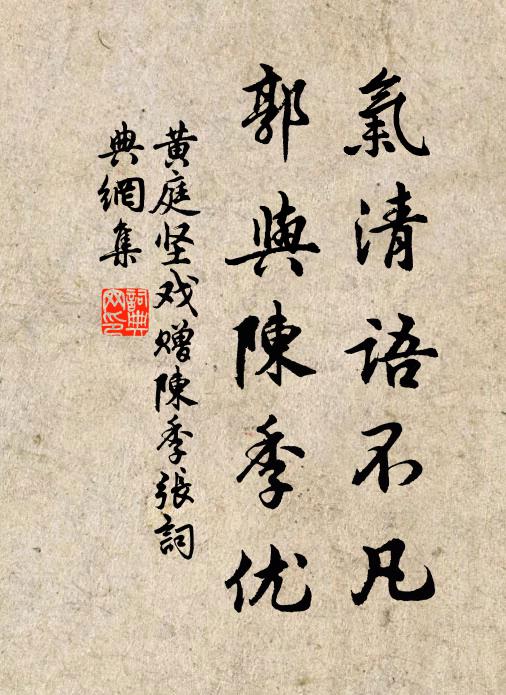 氣清語不凡
郭與陳季优
黄庭坚戏赠陳季張詞
典網集
詞典
网印